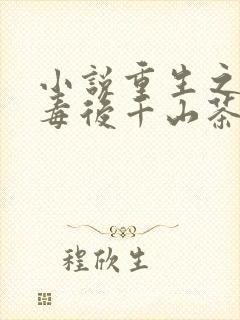 小說重生之
毒後千山茶
程欣生